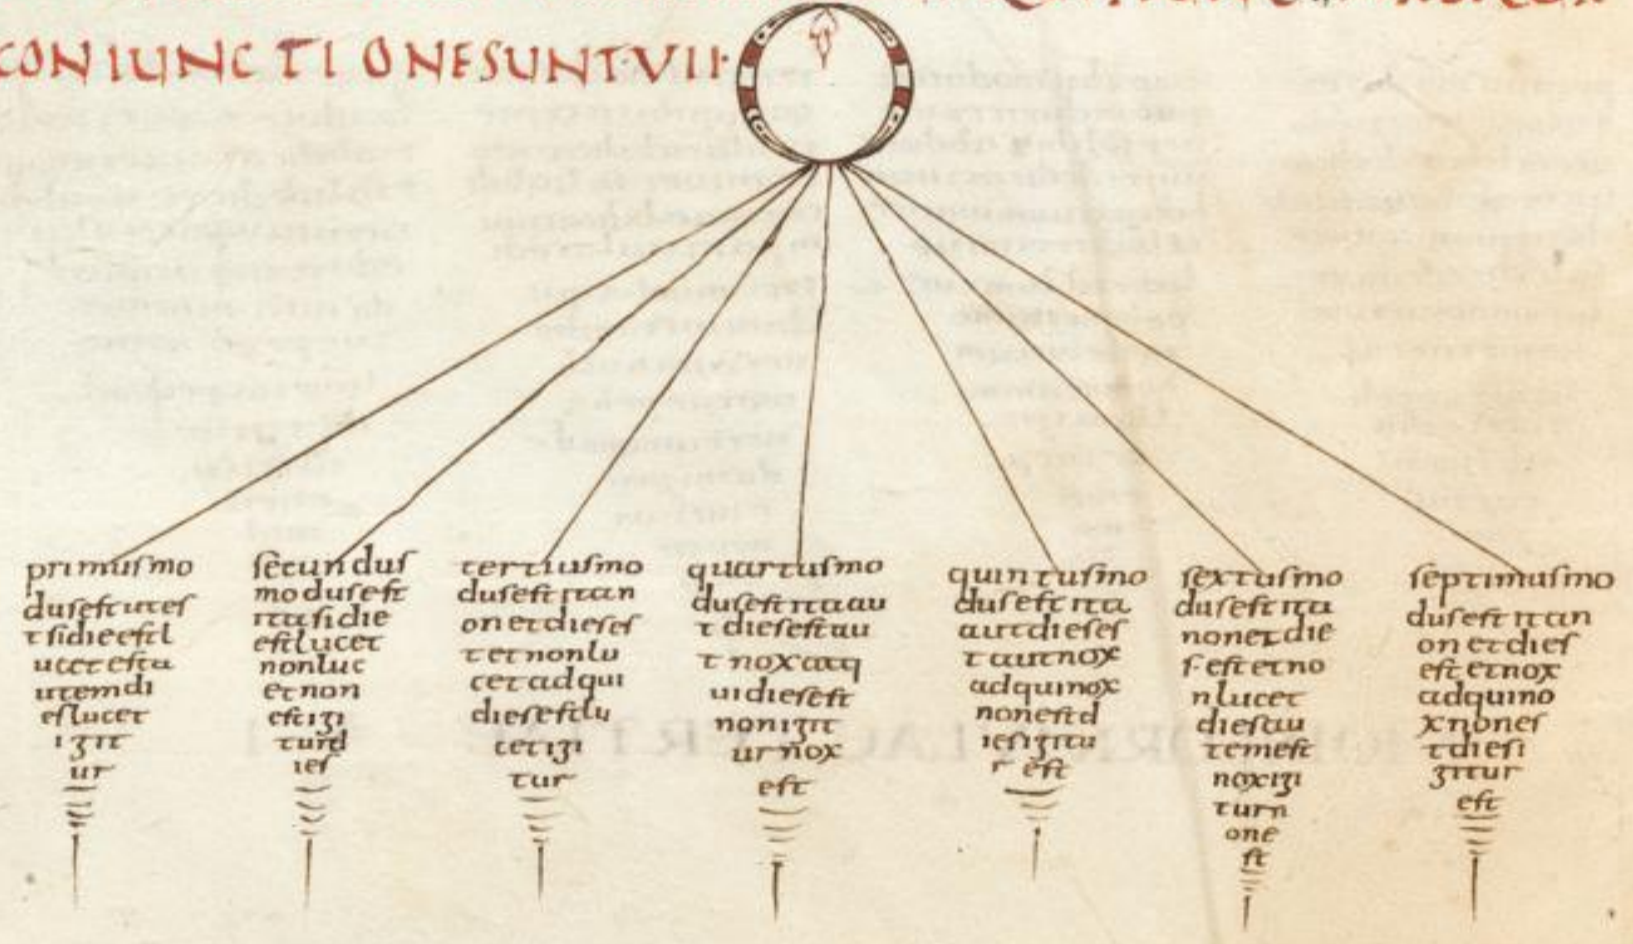 CONIUNCTIONESUNT·VII·
primusmo
dusestutes
tsidieestl
ucetesta
utemdi
eslucet
igit
ur
secundus
modusest
itasidie
estlucet
nonluc
etnon
estigi
turd
ies
tertiusmo
dusestitan
onetdieses
tetnonlu
cetadqui
diesestlu
cetigi
tur
quartusmo
dusestitaau
tdiesestau
tnoxatq
uidiesest
nonigit
urnox
est
quintusmo
dusestita
autdieses
tautnox
adquinox
nonestd
iesigitu
r est
sextusmo
dusestita
nonetdie
sestetno
nlucet
diesau
temest
noxigi
turn
one
st
septimusmo
dusestitan
onetdies
estetnox
adquino
xnones
tdiesi
gitur
est